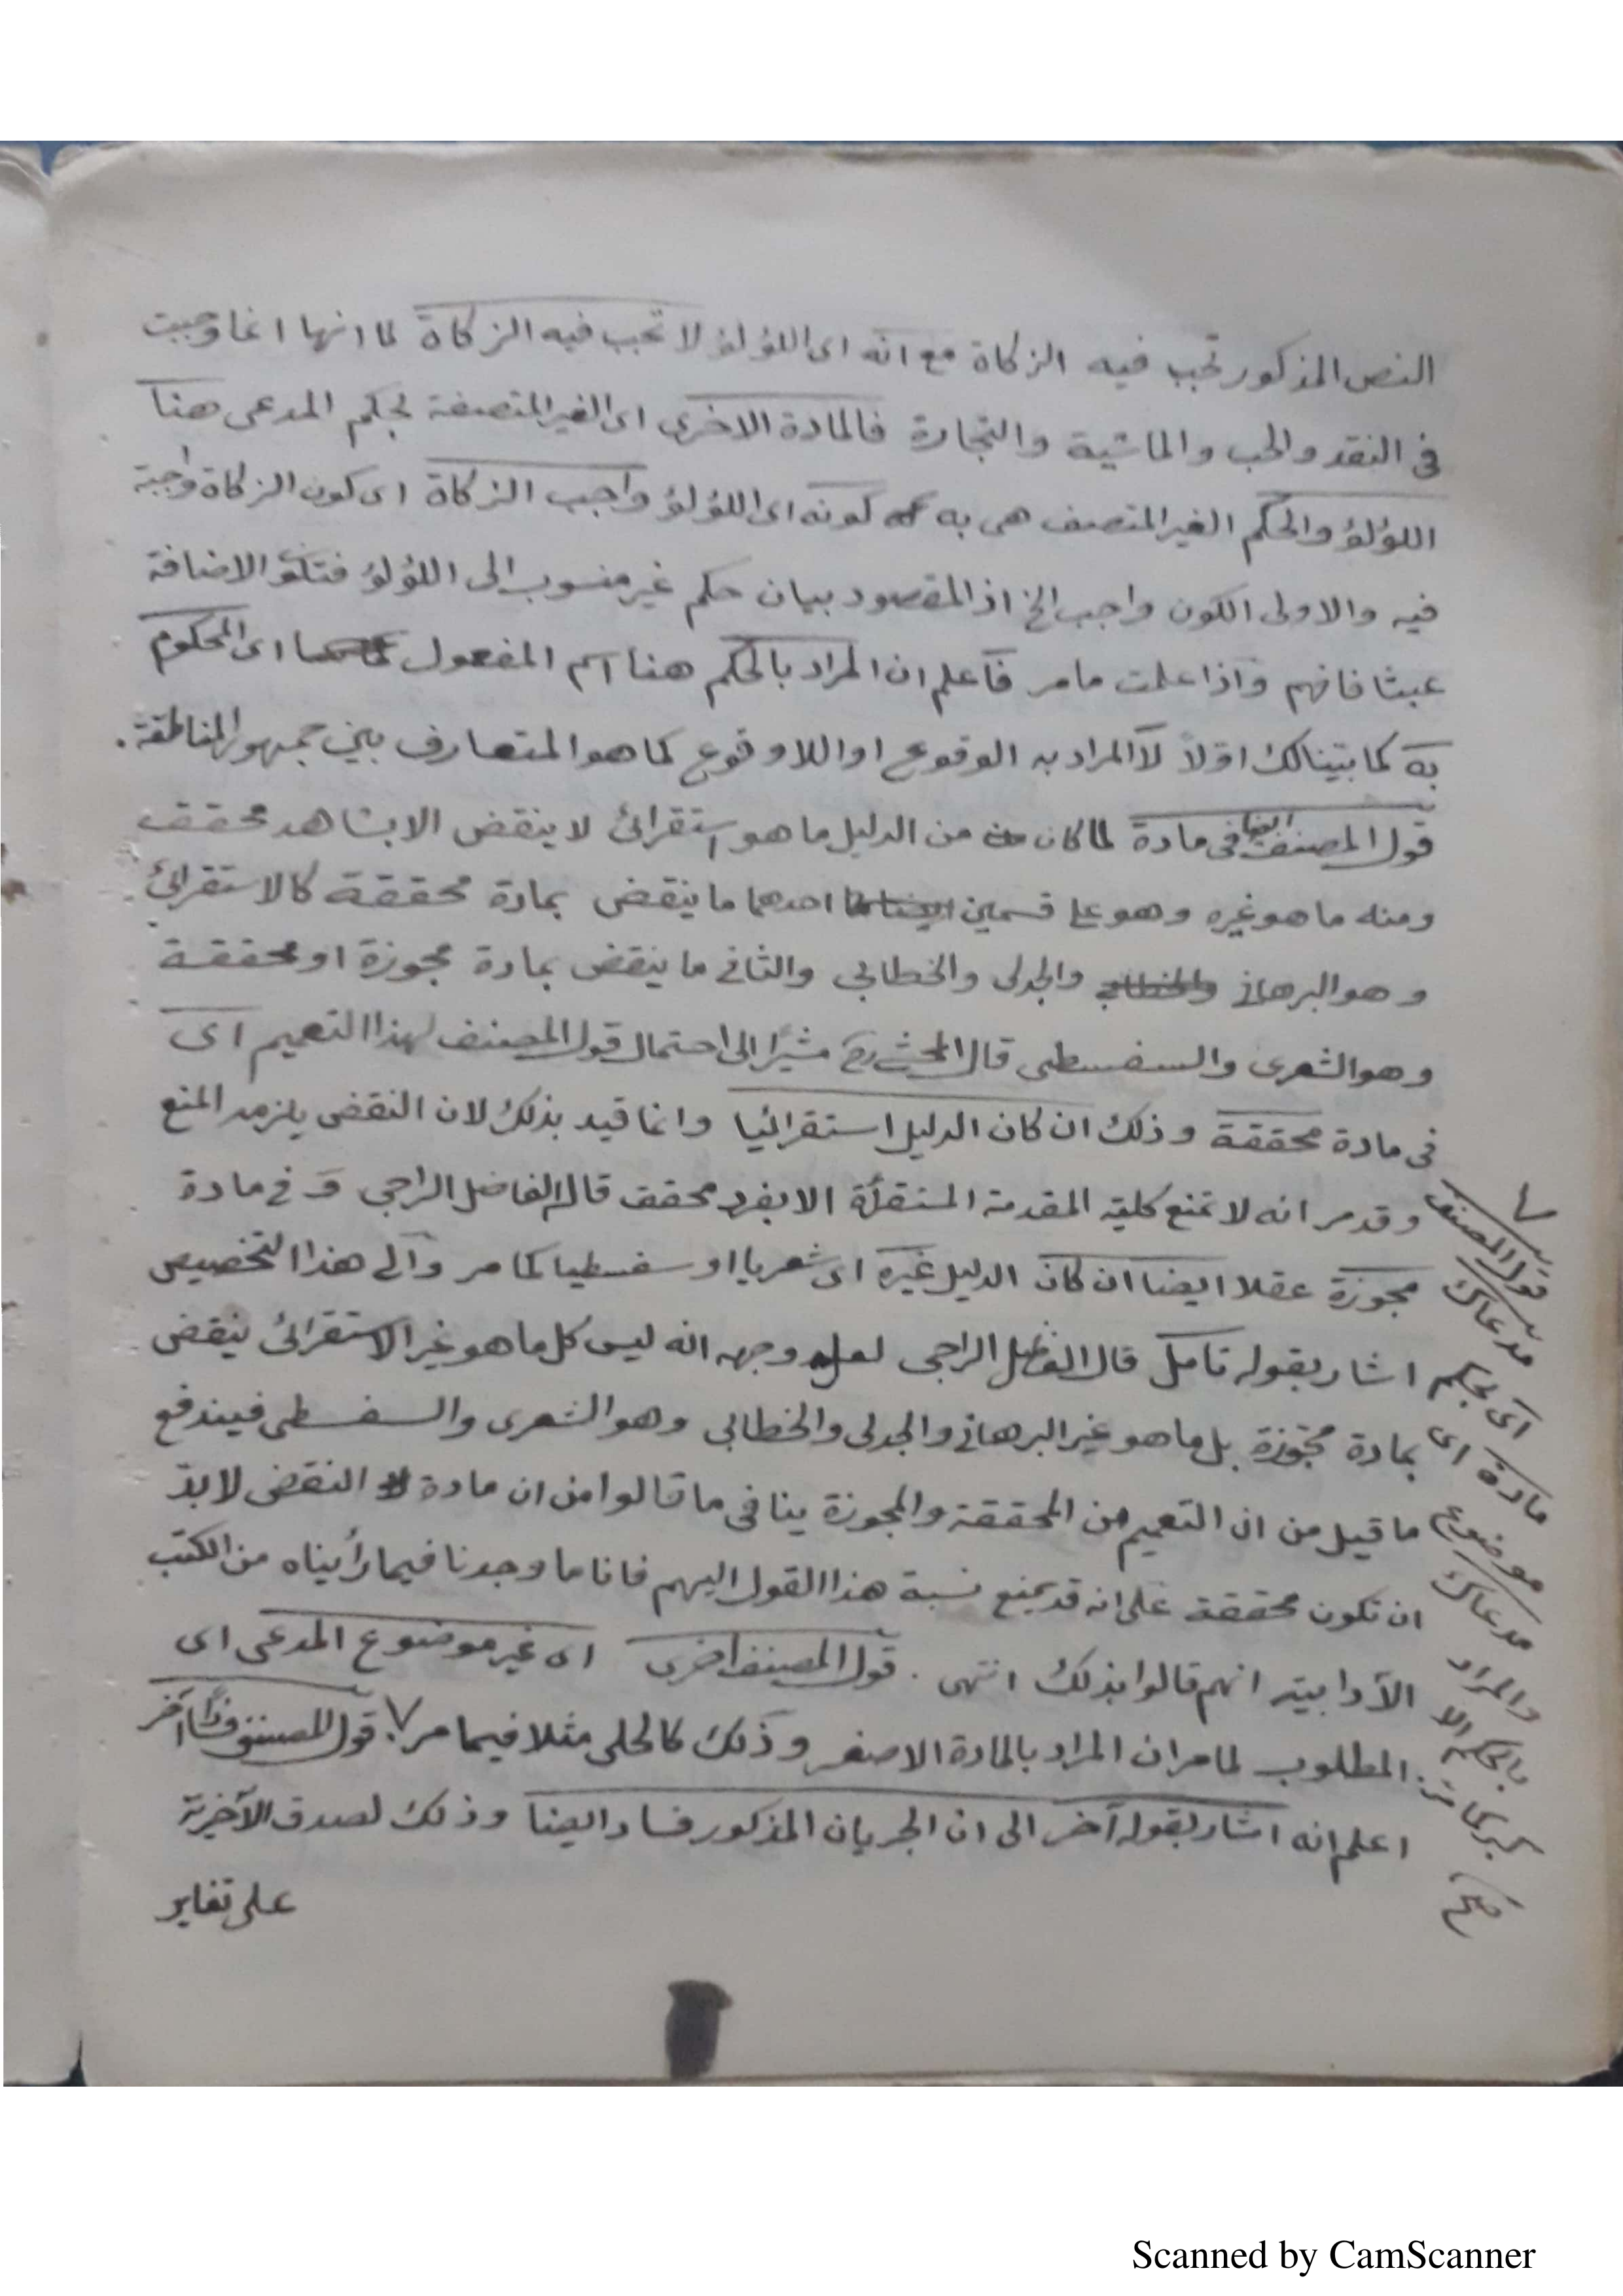 النص المذكور تجب فيه الزكاة مع انه اى اللؤلؤ لا تجب فيه الزكاة لما انها انما وجبت
فى النقد والحب والماشية والتجارة فالمادة الاخرى اى الغير المتصفة لحكم المدعى هنا
اللؤلؤ والحكم الغير المتصف هى به كونه اى اللؤلؤ واجب الزكاة اى كون الزكاة واجبة
فيه والاولى الكون واجب الخ اذ المقصود بيان حكم غير منسوب الى اللؤلؤ فتكو الاضافة
عبثا فافهم واذا علمت مامر فاعلم ان المراد بالحكم هنا اسم المفعول اى المحكوم
به كما بتينالك اوّلاً لا المراد به الوقوع او اللا وقوع كما هو المتعارف بين جمهور المناطقة.
قول المصنف ايضا فى مادة لما كان من الدليل ما هو استقرائ لا ينقض الا بشاهد محقق
ومنه ما هو غيره وهو على قسمين احدهما ما ينقض بمادة محققة كالاستقرائ
وهو البرهانى والجدلى والخطابى والثانى ما ينقض بمادة مجوزة او محققة
وهو الشعرى والسفسطى قال المحشى رح مشيرًا الى احتمال قول المصنف لهذا التعميم اى
فى مادة محققة وذلك ان كان الدليل استقرائيا وانما قيد بذلك لان النقض يلزمه المنع
وقد مر انه لا تمنع كلية المقدمة المستقرأة الا بفرد محقق قاله الفاضل الراجى و فى مادة
مجوزة عقلا ايضا ان كان الدليل غيره اى شعريا او سفسطيا كما مر والى هذا التخصيص
اشار بقوله تامل قال الفاضل الراجى لعل وجهه انه ليس كل ما هو غير الاستقرائ ينقض
بمادة مجوّزة بل ما هو غير البرهانى والجدلى والخطابى وهو الشعرى والسفسطى فيندفع
ما قيل من ان التعميم من المحققة والمجوزة ينافى ما قالوا من ان مادة النقض لا بدّ
ان تكون محققة على انه قد يمنع نسبة هذا القول اليهم فانا ما وجدنا فيما رأيناه من الكتب
الآدابية انهم قالوا بذلك انتهى . قول المصنف اخرى اى غير موضوع المدعى اى
المطلوب لما مر ان المراد بالمادة الاصغر وذلك كالحلى مثلا فيما مر ٧. قول المصنف آخر
اعلم انه اشار بقوله آخر الى ان الجريان المذكور فسادا ايضا وذلك لصدق الآخرية
على تغاير
٧ قول المصنف
مدعاك
اى بحكم
مادة اى
موضوع
مدعاك
والمراد
بالحكم الا
كبر كما مر
صح
Scanned by CamScanner